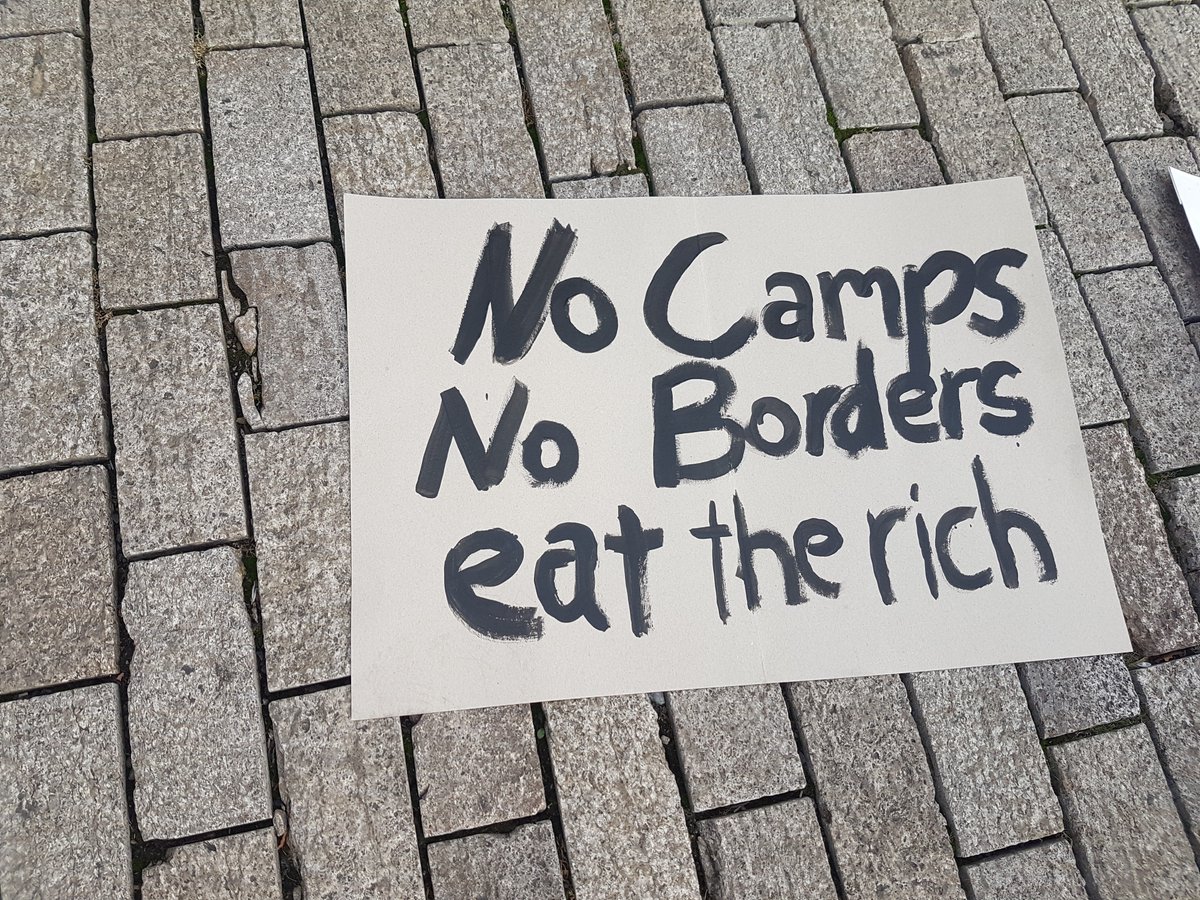 No Camps
No Borders
eat the rich